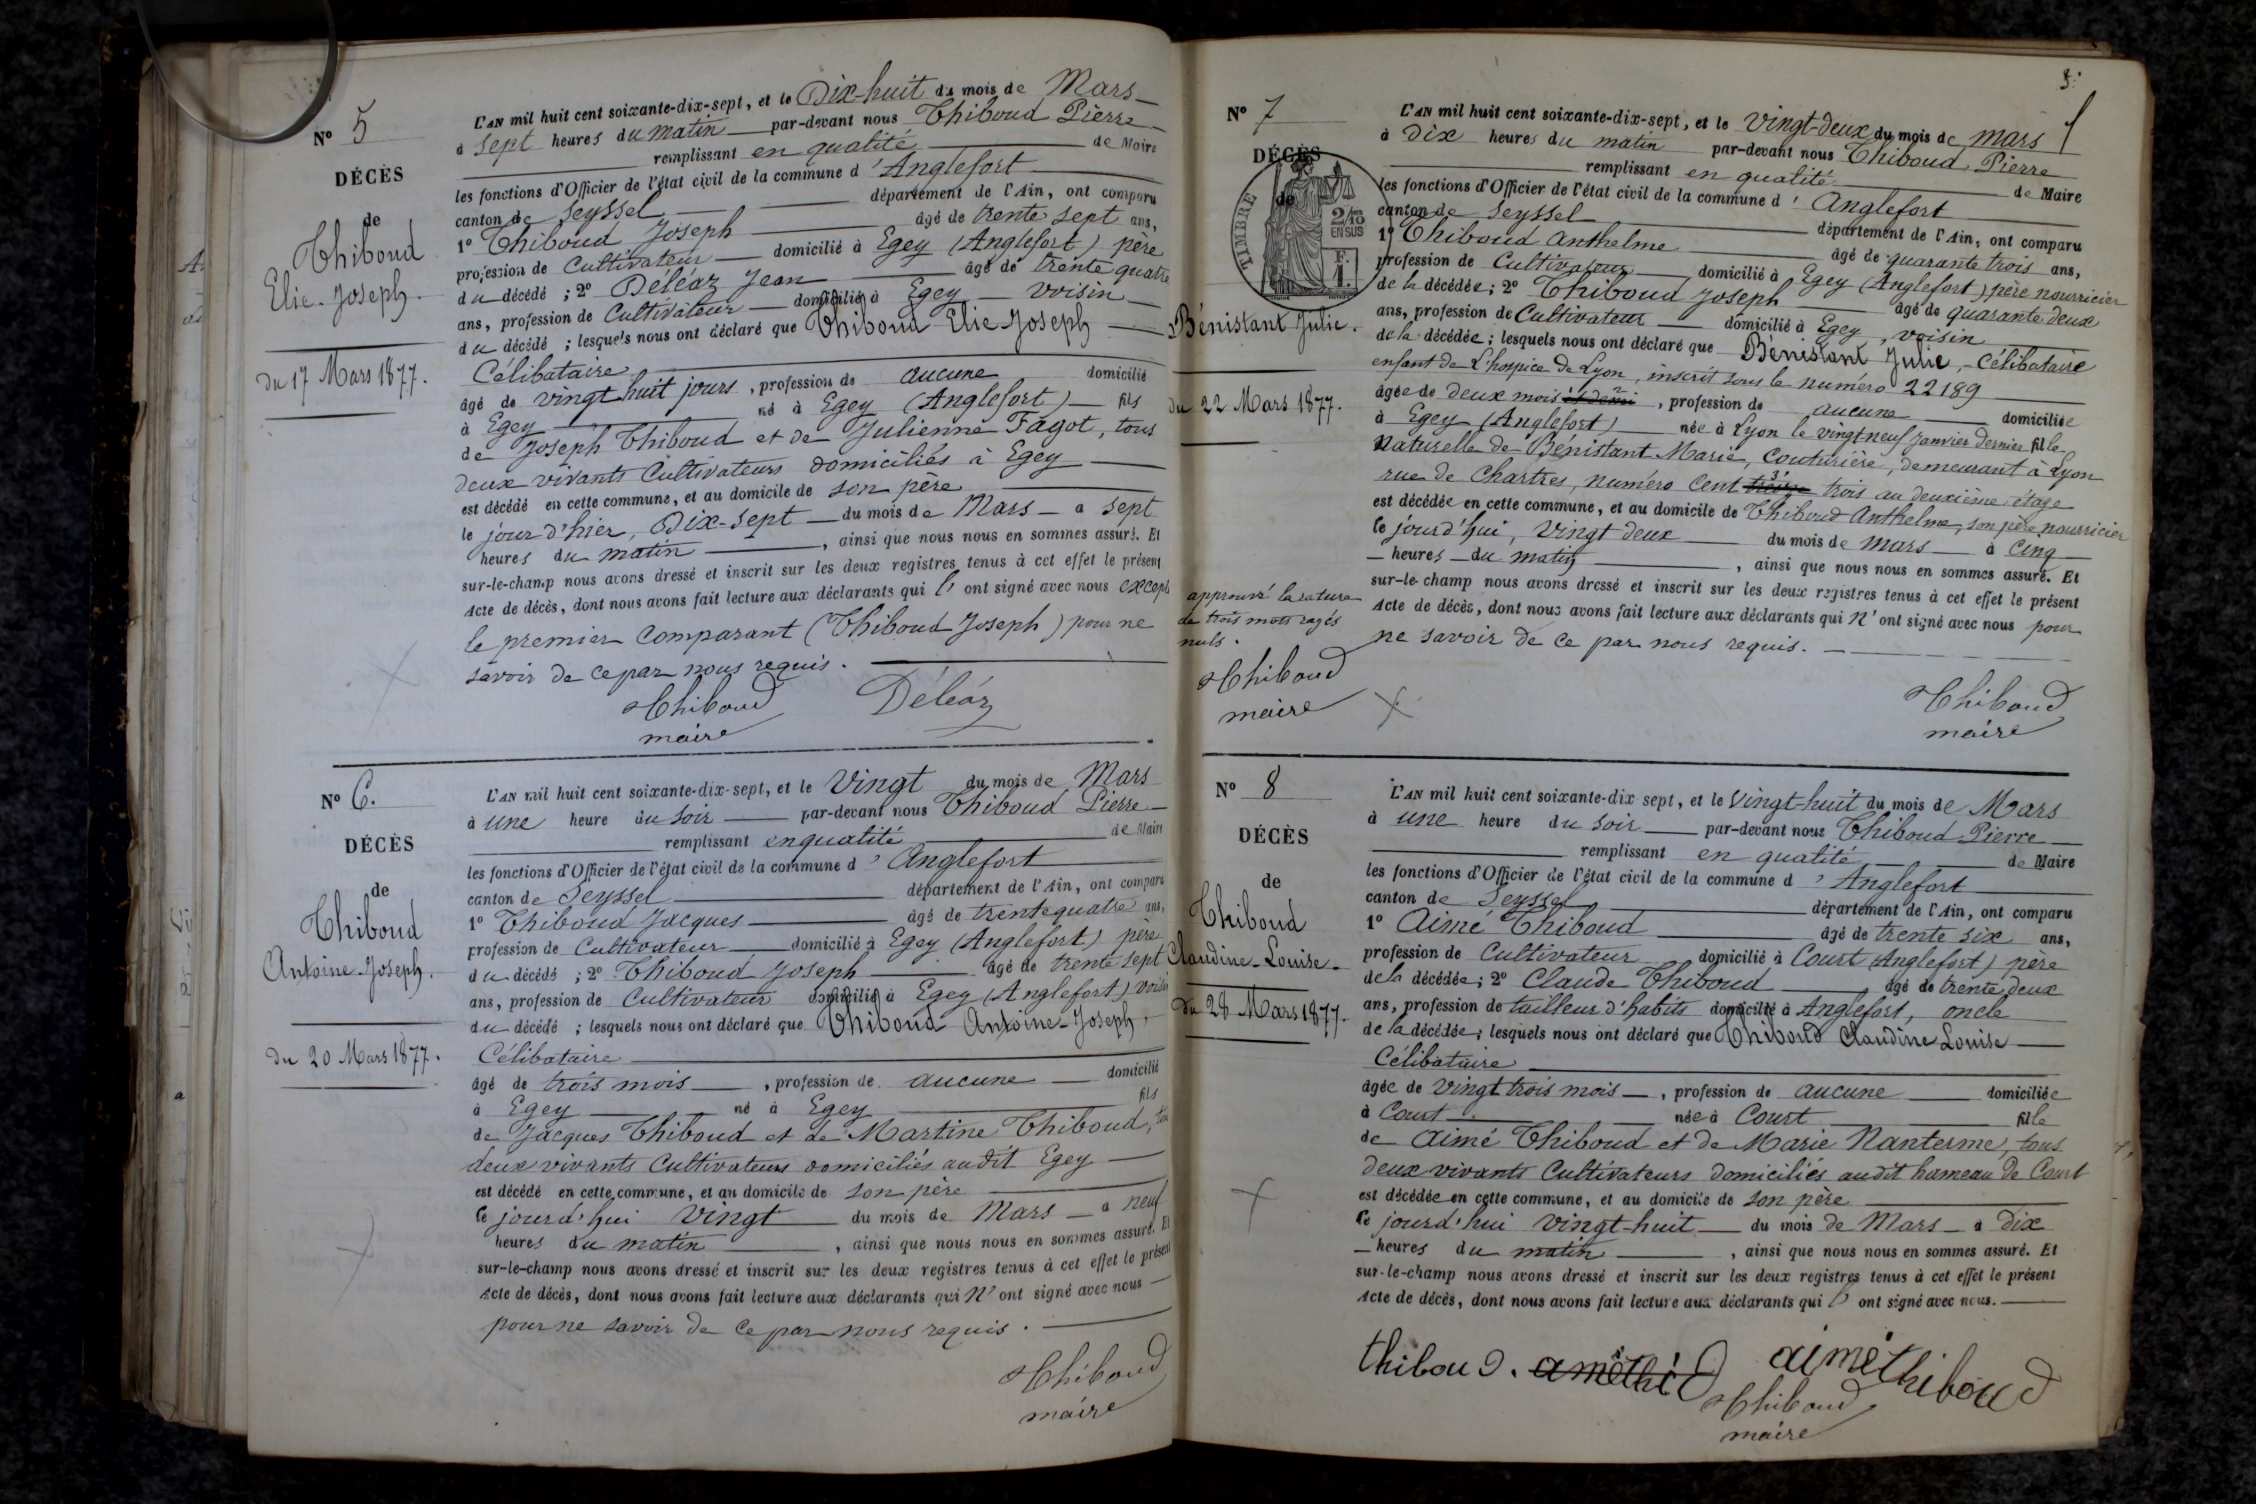 N° 5
DÉCÈS
de
Thiboud
Elie-Joseph.
du 17 Mars 1877.
L'AN mil huit cent soixante-dix-sept, et le Dix-huit du mois de Mars
à sept heures du matin par-devant nous Thiboud Pierre
remplissant en qualité de Maire
les fonctions d'Officier de l'état civil de la commune d'Anglefort
canton de Seyssel département de l'Ain, ont comparu
1° Thiboud Joseph âgé de trente sept ans,
profession de Cultivateur domicilié à Egey (Anglefort) père
du décédé ; 2° Déléaz Jean âgé de trente quatre
ans, profession de Cultivateur domicilié à Egey voisin
du décédé ; lesquels nous ont déclaré que Thiboud Elie Joseph
Célibataire
âgé de vingt huit jours, profession de aucune domicilié
à Egey né à Egey (Anglefort) fils
de Joseph Thiboud et de Julienne Fagot, tous
deux vivants Cultivateurs domiciliés à Egey
est décédé en cette commune, et au domicile de son père
le jour d'hier, Dix-sept du mois de Mars à sept
heures du matin, ainsi que nous nous en sommes assuré. Et
sur-le-champ nous avons dressé et inscrit sur les deux registres tenus à cet effet le présent
Acte de décès, dont nous avons fait lecture aux déclarants qui l'ont signé avec nous excepté
le premier comparant (Thiboud Joseph) pour ne
savoir de ce par nous requis.
Thiboud Déléaz
maire
N° 6.
DÉCÈS
de
Thiboud
Antoine-Joseph.
du 20 Mars 1877.
L'AN mil huit cent soixante-dix-sept, et le Vingt du mois de Mars
à une heure du soir par-devant nous Thiboud Pierre
remplissant en qualité de Maire
les fonctions d'Officier de l'état civil de la commune d'Anglefort
canton de Seyssel département de l'Ain, ont comparu
1° Thiboud Jacques âgé de trente quatre ans,
profession de Cultivateur domicilié à Egey (Anglefort) père
du décédé ; 2° Thiboud Joseph âgé de trente sept
ans, profession de Cultivateur domicilié à Egey (Anglefort) voisin
du décédé ; lesquels nous ont déclaré que Thiboud Antoine-Joseph,
Célibataire
âgé de trois mois, profession de aucune domicilié
à Egey né à Egey fils
de Jacques Thiboud et de Martine Thiboud, tous
deux vivants Cultivateurs domiciliés audit Egey
est décédé en cette commune, et au domicile de son père
le jourd'hui vingt du mois de Mars à neuf
heures du matin, ainsi que nous nous en sommes assuré. Et
sur-le-champ nous avons dressé et inscrit sur les deux registres tenus à cet effet le présent
Acte de décès, dont nous avons fait lecture aux déclarants qui n'ont signé avec nous
pour ne savoir de ce par nous requis.
Thiboud
maire
N° 7
DÉCÈS
de
TIMBRE
2/10
EN SUS
F.
1.
Bénistant Julie.
du 22 Mars 1877.
approuvé la rature
de trois mots rayés
nuls.
Thiboud
maire
L'AN mil huit cent soixante-dix-sept, et le vingt-deux du mois de mars
à dix heures du matin par-devant nous Thiboud Pierre
remplissant en qualité de Maire
les fonctions d'Officier de l'état civil de la commune d'Anglefort
canton de Seyssel département de l'Ain, ont comparu
1° Thiboud Anthelme âgé de quarante trois ans,
profession de Cultivateur domicilié à Egey (Anglefort) père nourricier
de la décédée ; 2° Thiboud Joseph âgé de quarante deux
ans, profession de Cultivateur domicilié à Egey, voisin
de la décédée ; lesquels nous ont déclaré que Bénistant Julie, Célibataire
enfant de l'hospice de Lyon, inscrit sous le numéro 22189
âgée de deux mois et demi, profession de aucune domiciliée
à Egey (Anglefort) née à Lyon le vingt-neuf janvier dernier fille
Naturelle de Bénistant Marie, couturière, demeurant à Lyon
rue de Chartres, numéro cent treize trois au deuxième étage
est décédée en cette commune, et au domicile de Thiboud Anthelme, son père nourricier
le jourd'hui, vingt deux du mois de mars à cinq
heures du matin, ainsi que nous nous en sommes assuré. Et
sur-le-champ nous avons dressé et inscrit sur les deux registres tenus à cet effet le présent
Acte de décès, dont nous avons fait lecture aux déclarants qui n'ont signé avec nous pour
ne savoir de ce par nous requis.
Thiboud
maire
N° 8
DÉCÈS
de
Thiboud
Claudine-Louise.
du 28 Mars 1877.
L'AN mil huit cent soixante-dix sept, et le Vingt-huit du mois de Mars
à une heure du soir par-devant nous Thiboud Pierre
remplissant en qualité de Maire
les fonctions d'Officier de l'état civil de la commune d'Anglefort
canton de Seyssel département de l'Ain, ont comparu
1° Aimé Thiboud âgé de trente six ans,
profession de Cultivateur domicilié à Court (Anglefort) père
de la décédée ; 2° Claude Thiboud âgé de trente deux
ans, profession de tailleur d'habits domicilié à Anglefort, oncle
de la décédée ; lesquels nous ont déclaré que Thiboud Claudine Louise
Célibataire
âgée de vingt trois mois, profession de aucune domiciliée
à Court née à Court fille
de Aimé Thiboud et de Marie Nanterme, tous
deux vivants Cultivateurs domiciliés audit hameau de Court
est décédée en cette commune, et au domicile de son père
le jourd'hui vingt-huit du mois de Mars à dix
heures du matin, ainsi que nous nous en sommes assuré. Et
sur-le-champ nous avons dressé et inscrit sur les deux registres tenus à cet effet le présent
Acte de décès, dont nous avons fait lecture aux déclarants qui l'ont signé avec nous.
thiboud. aiméthiboud
Thiboud
maire